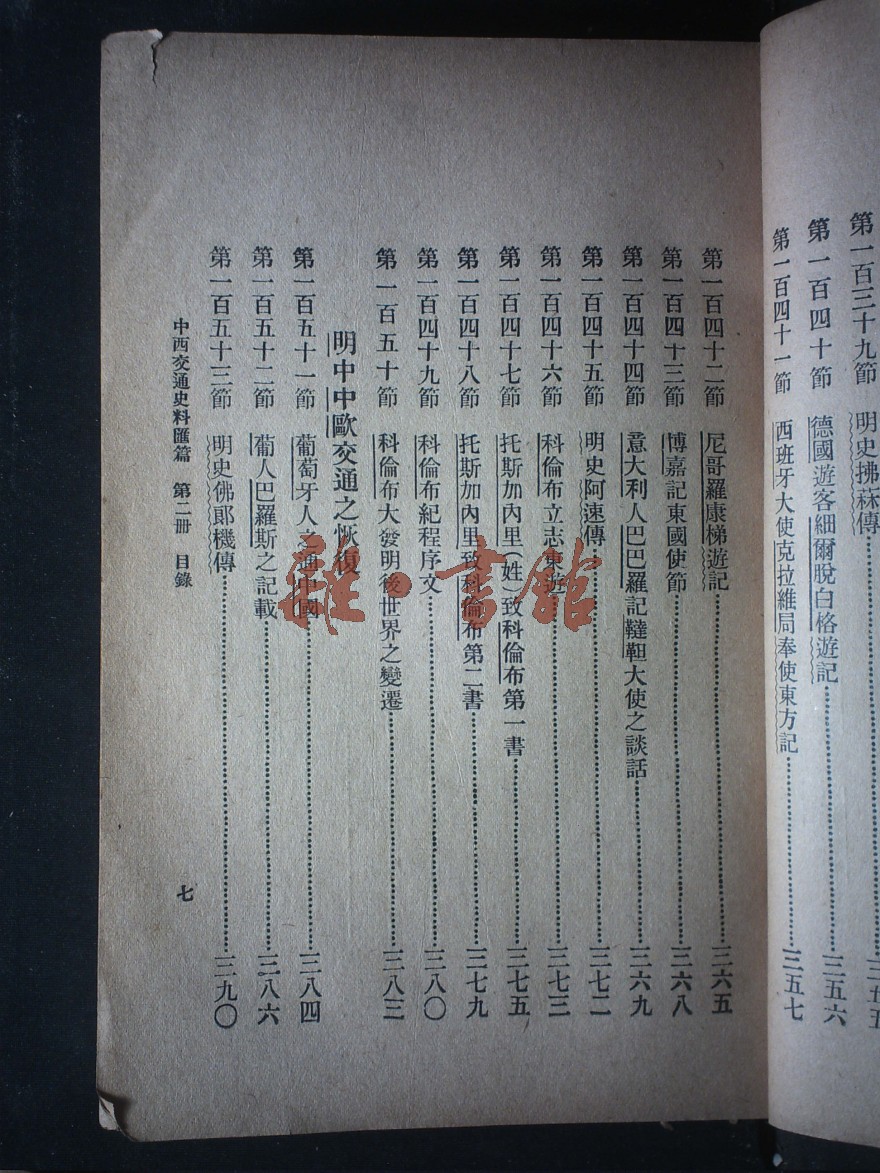 第一百三十九節 明史拂菻傳 三五五
第一百四十節 德國遊客細爾脫白格遊記 三五六
第一百四十一節 西班牙大使克拉維局奉使東方記 三五七
第一百四十二節 尼哥羅康梯遊記 三六五
第一百四十三節 博嘉記東國使節 三六八
第一百四十四節 意大利人巴巴羅記韃靼大使之談話 三六九
第一百四十五節 明史阿速傳 三七二
第一百四十六節 科倫布立志東遊 三七三
第一百四十七節 托斯加內里(姓)致科倫布第一書 三七五
第一百四十八節 托斯加內里致科倫布第二書 三七九
第一百四十九節 科倫布紀程序文 三八〇
第一百五十節 科倫布大發明後世界之變遷 三八三
明中中歐交通之恢復
第一百五十一節 葡萄牙人之通中國 三八四
第一百五十二節 葡人巴羅斯之記載 三八六
第一百五十三節 明史佛郞機傳 三九〇
中西交通史料匯篇 第二册 目錄
七
雜·書館